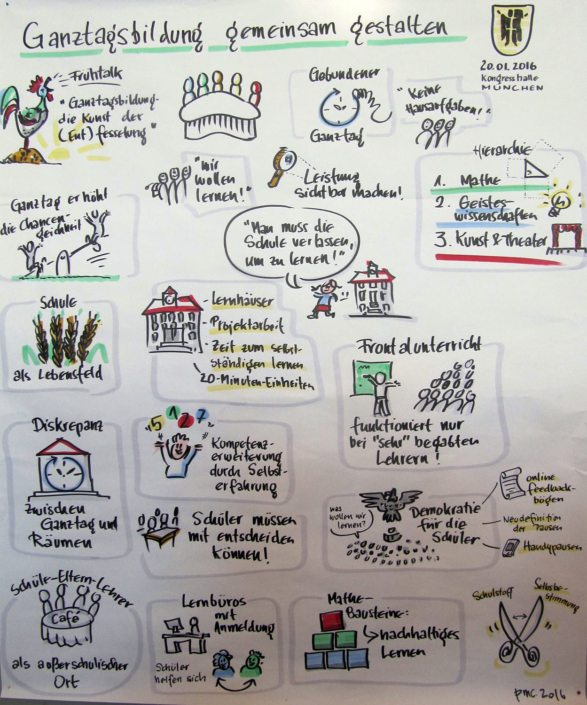 Ganztagsbildung gemeinsam gestalten
20.01.2016
Kongresshalle
MÜNCHEN
Frühtalk
"Ganztagsbildung-
die Kunst der
(Ent)fesselung"
Gebundener
Ganztag
"Keine
Hausaufgaben!"
"Wir
wollen
lernen!"
Leistung
sichtbar machen!
Hierarchie
1. Mathe
2. Geistes-
wissenschaften
3. Kunst & Theater
Ganztag erhöht
die Chancen-
gleichheit
"Man muss die
Schule verlassen,
um zu lernen!"
Schule
als Lebensfeld
- Lernhäuser
- Projektarbeit
- Zeit zum selbst-
ständigen lernen
- 20-Minuten-Einheiten
Frontalunterricht
funktioniert nur
bei "sehr" begabten
Lehrern!
Diskrepanz
zwischen
Ganztag und
Räumen
5 1 2 7
Kompetenz-
erweiterung
durch Selbst-
erfahrung
Schüler müssen
mit entscheiden
können!
was
wollen wir
lernen?
Demokratie
für die
Schüler
online
Feedback-
bögen
Neudefinition
der Pausen
Handypausen
Schüler-Eltern-Lehrer
Café
als außerschulischer
Ort
Lernbüros
mit
Anmeldung
Schüler
helfen sich
Mathe-
Bausteine:
nachhaltiges
Lernen
Schulstoff
Selbstbe-
stimmung
pmc. 2016